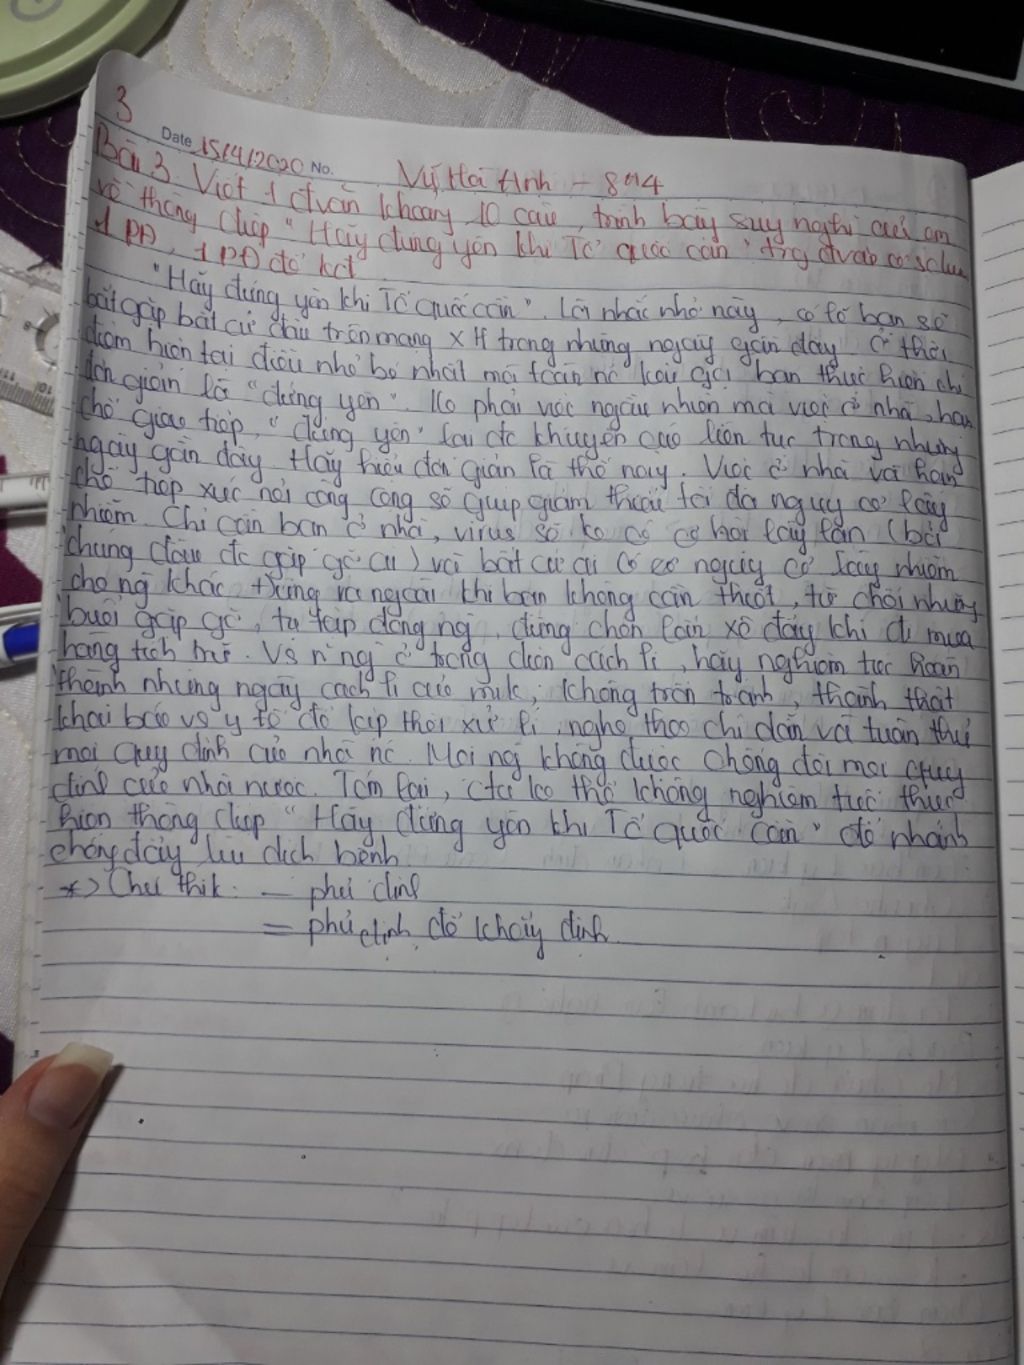 3
Date 15/4/2020 No.
Vũ Hà Anh - 8A4
Bài 3. Viết 1 đvăn khoảng 10 câu, trình bày suy nghĩ của em
về thông điệp "Hãy đứng yên khi Tổ quốc cần" trg đvăn có sd câu
1 PĐ, 1 PĐ để kđ
"Hãy đứng yên khi Tổ quốc cần". Lời nhắc nhở này, có lẽ bạn sẽ
bắt gặp bất cứ đâu trên mạng XH trong những ngày gần đây. Ở thời
điểm hiện tại điều nhỏ bé nhất mà toàn nc kêu gọi bạn thực hiện chỉ
đơn giản là "đứng yên". Ko phải việc ngẫu nhiên mà việc ở nhà, hạn
chế giao tiếp, "đứng yên" lại đc khuyến cáo liên tục trong những
ngày gần đây. Hãy hiểu đơn giản là thế này. Việc ở nhà và hạn
chế tiếp xúc nơi công cộng sẽ giúp giảm thiểu tối đa nguy cơ lây
nhiễm. Chỉ cần bạn ở nhà, virus sẽ ko có cơ hội lây lan (bởi
chúng đâu đc gặp gỡ ai) và bất cứ ai có cơ nguy cơ lây nhiễm
cho ng khác. Đừng ra ngoài khi bạn không cần thiết, từ chối những
buổi gặp gỡ, tụ tập đông ng, đừng chen lấn xô đẩy khi đi mua
hàng tích trữ. Vs n~ ng ở trong diện cách li, hãy nghiêm túc hoàn
thành những ngày cách li của mik, không trốn tránh, thành thật
khai báo vs y tế để kịp thời xử lí, nghe theo chỉ dẫn và tuân thủ
mọi quy định của nhà nc. Mọi ng không được chống đối mọi quy
định của nhà nước. Tóm lại, cta ko thể không nghiêm túc thực
hiện thông điệp "Hãy đứng yên khi Tổ quốc cần" để nhanh
chóng đẩy lùi dịch bệnh.
*) Chú thik: — phủ định
= phủ định để khẳng định